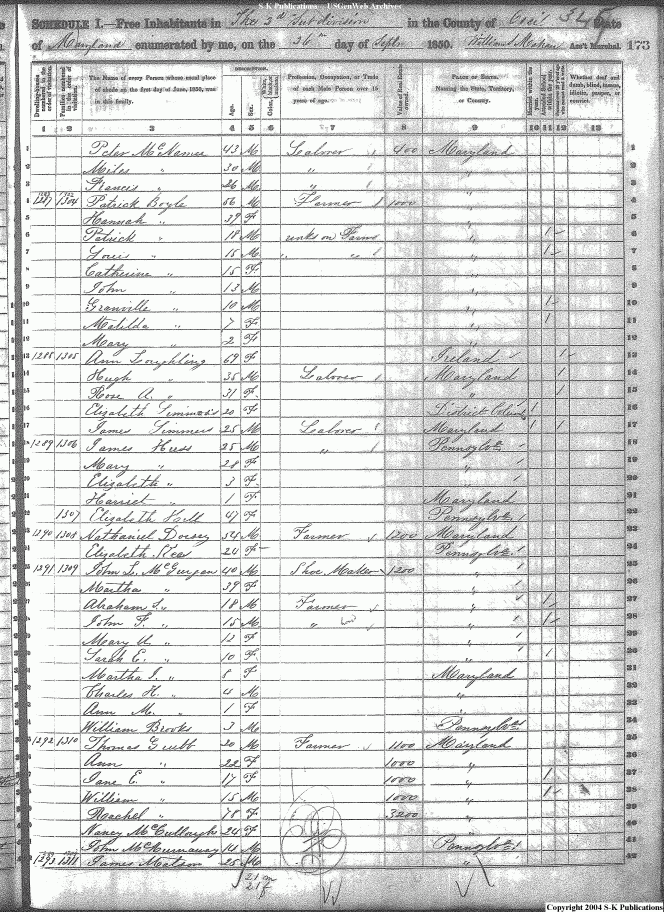 S-K Publications - USGenWeb Archives
SCHEDULE I.—Free Inhabitants in The 3d Subdivision in the County of Cecil State
of Maryland enumerated by me, on the 26th day of Septr 1850. William Ass't Marshal. 173
DESCRIPTION.
Dwelling-houses numbered in the order of visitation. Families numbered in the order of visitation. The Name of every Person whose usual place of abode on the first day of June, 1850, was in this family. Age. Sex. Color, White, black, or mulatto. Profession, Occupation, or Trade of each Male Person over 15 years of age. Value of Real Estate owned. Place of Birth. Naming the State, Territory, or Country. Married within the year. Attended School within the year. Whether deaf and dumb, blind, insane, idiotic, pauper, or convict.
1 2 3 4 5 6 7 8 9 10 11 12 13
1 Peter McNamee 43 M Labover 400 Maryland 1
2 Miles " 30 M " " 2
3 Francis " 26 M " " 3
4 1304 Patrick Boyle 56 M Farmer 1000 " 4
5 Hannah " 39 F " 5
6 Patrick " 18 M works on Farm " 6
7 Louis " 15 M " " " 7
8 Catherine " 15 F " 8
9 John " 13 M " 9
10 Granville " 10 M " 10
11 Matilda " 7 F " 11
12 Mary " 2 F " 12
13 1288 1305 Ann Loughling 69 F Ireland 13
14 Hugh " 35 M Labover Maryland 14
15 Rose A. " 31 F " 15
16 Elizabeth 20 F District 16
17 James Simmers 25 M Labover Maryland 17
18 1289 1306 James Hess 25 M " Pennsylva 18
19 Mary " 28 F " 19
20 Elizabeth " 3 F " 20
21 Harriet " 1 F Maryland 21
22 1307 Elizabeth Hill 47 F Pennsylva 22
23 1290 1308 Nathaniel Dorsey 54 M Farmer 1200 Maryland 23
24 Elizabeth 24 F Pennsylva 24
25 1291 1309 John L. 40 M Shoe Maker 1200 " 25
26 Martha " 39 F " 26
27 Abraham S. " 18 M Farmer " 27
28 John F. " 15 M " " 28
29 Mary A. " 12 F " 29
30 Sarah E. " 10 F " 30
31 Martha J. " 8 F Maryland 31
32 Charles H. " 4 M " 32
33 Ann M. " 1 F " 33
34 William Brooks 3 M Pennsylva 34
35 1292 1310 Thomas Grubb 20 M Farmer 1100 Maryland 35
36 Ann " 22 F 1000 " 36
37 Jane E. " 17 F 1000 " 37
38 William " 15 M 1000 " 38
39 Rachel " 78 F 3200 " 39
40 Nancy McCullough 24 F " 40
41 John 14 M Pennsylva 41
42 1293 1311 James Matson 25 M " 42
21 m
21 f
Copyright 2004 S-K Publications